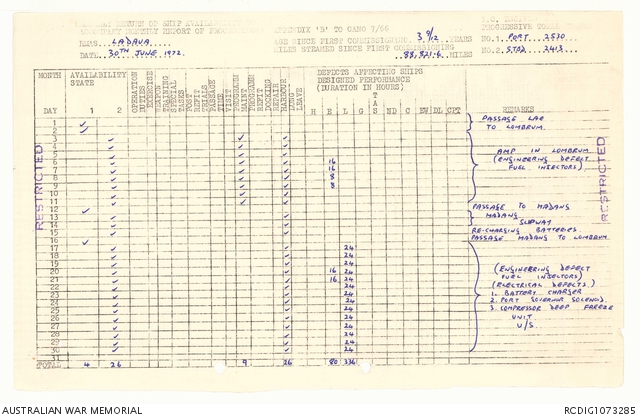 APPENDIX 'B' TO CANO 7/66
HMAS LADAVA
DATE 30TH JUNE 1972.
SINCE FIRST COMMISSIONING 3 9/12 YEARS
MILES STEAMED SINCE FIRST COMMISSIONING 88,821.6 MILES
PROGRESSIVE TOTAL
NO.1 PORT 2530
NO.2 STBD 2413
MONTH
AVAILABILITY STATE
DEFECTS AFFECTING SHIPS
DESIGNED PERFORMANCE
(DURATION IN HOURS)
DAY 1 2
OPERATION DUTIES
EXERCISE
TRAINING
SPECIAL TASKS
POST REFIT TRIALS
PASSAGE TIME
VISIT
PROGRAM MAINT
PROGRAM REFIT
DOCKING
REPAIR
HARBOUR
LONG LEAVE
H E L G TAS ND C EW DL CPT REMARKS
1 PASSAGE LAE
2 TO LOMBRUM.
3
4
5 AMP IN LOMBRUM
6 16 (ENGINEERING DEFECT
7 16 FUEL INJECTORS)
8 8
9 8
10
11
12 PASSAGE TO MADANG
13 MADANG
14 SLIPWAY
15 RE-CHARGING BATTERIES.
16 PASSAGE MADANG TO LOMBRUM
17 24
18 24
19 24
20 16 24 (ENGINEERING DEFECT
21 16 24 FUEL INJECTORS)
22 24 (ELECTRICAL DEFECTS.)
23 24 1. BATTERY CHARGER
24 24 2. PORT GOVERNOR SOLENOID.
25 24 3. COMPRESSOR DEEP FREEZE
26 24 UNIT.
27 24 U/S.
28 24
29 24
30 24
31
TOTAL 4 26 9 26 80 336
RESTRICTED
RESTRICTED
AUSTRALIAN WAR MEMORIAL
RCDIG1073285